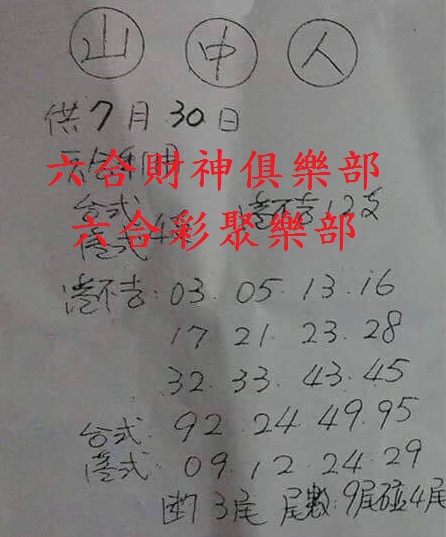 山 中 人
供7月30日
六合財神俱樂部
台式
港不吉12支
六合彩聚樂部
港式
港不吉:03.05.13.16
17 21.23.28
32.33.43.45
台式:92.24.49.95
港式:09.12.24.29
3尾 尾數:9尾碰4尾